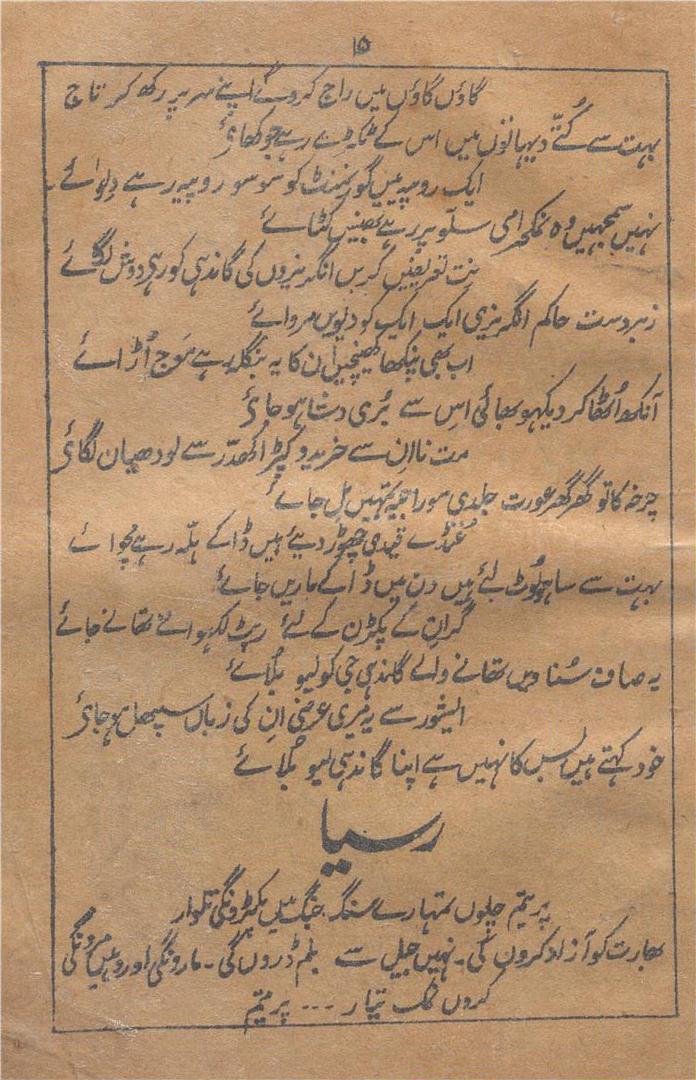 ۱۵
گاؤں گاؤں میں راج کروگے اپنے سر پر رکھ کر تاج
بہت سے کُتّے دیہاتوں میں اس کے ٹکڑے رہے جو کھائے
ایک روپیہ میں گورنمنٹ کو سو سو روپیہ رہے دلوائے
نہیں سمجہیں وہ نمکحرامی سلّو پر رہے بھینیں کٹائے
نت تعریفیں کریں انگریزوں کی گاندہی کو رہے دوش لگائے
زبردست حاکم انگریزی ایک ایک کو دیویں مروائے
اب بھی پنکھا کھینچیں ان کا یہ بنگلہ رہے موج اُڑائے
آنکھ اُٹھا کر دیکہو بھائی اس سے بُری دشا ہو جائے
مت نا ان سے خریدو کپڑا کھدّر سے لو دھیان لگائے
چرخہ کاتو گھر گھر عورت جلدی سوراجیہ تمہیں مل جائے
غنڈے قیدی چھوڑ دیئے ہیں ڈاکے ہلّہ رہے مچوائے
بہت سے ساہو لُوٹ لئے ہیں دن میں ڈاکے ماریں جائے
گر ان کے پکڑن کے لئے رپٹ لکہوانے تھانے جائے
یہ صاف سُنا دیں تھانے والے گاندہی جی کو لیو بُلائے
ایشور سے یہ میری عرضی ان کی زباں سپھل ہو جائے
خود کہتے ہیں بس کا نہیں ہے اپنا گاندہی لیو بُلائے
رسیا
پریتم چلوں تمہارے سنگ جنگ میں پکڑونگی تلوار
بھارت کو آزاد کروں گی۔ نہیں جیل سے بلم ڈروں گی۔ مارونگی اور وہیں مرونگی
کروں نمک تیار --- پریتم